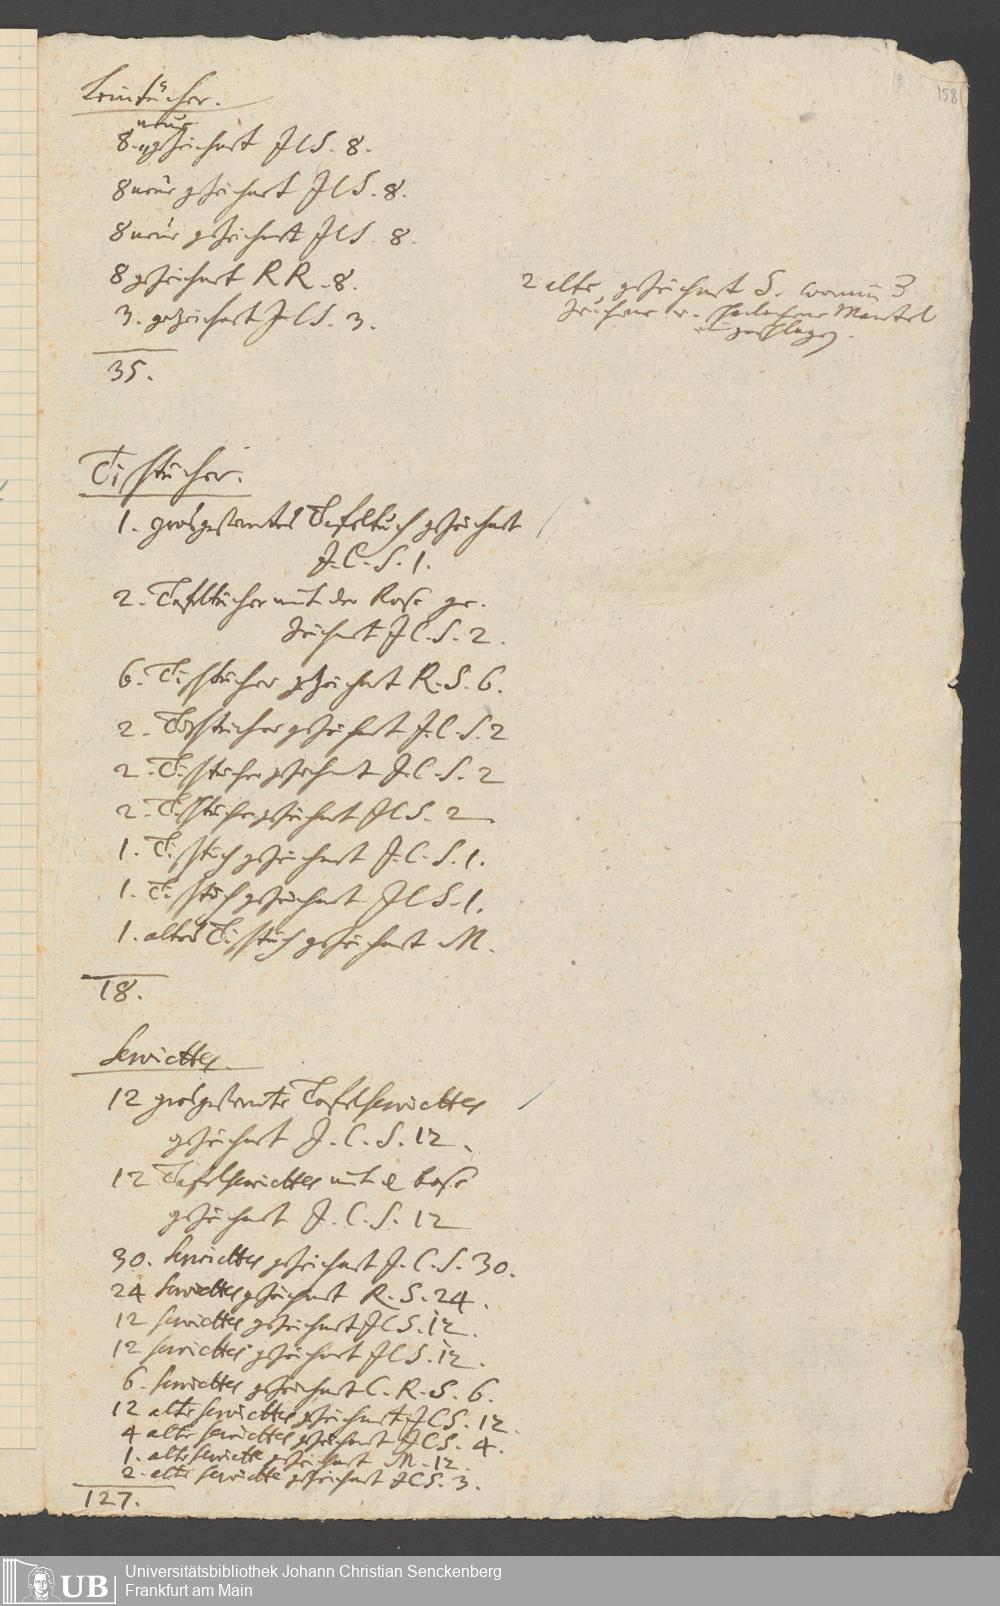 158
Leintücher.
neue
8. gezeichnet JCS. 8.
8 neue gezeichnet JCS. 8.
8 neue gezeichnet JCS. 8.
8 gezeichnet RR. 8.
3. gezeichnet JCS. 3.
35.
2 alte gezeichnet S. worein 3
seidene u. Mantel
eingeschlagen.
Tischtücher.
1. grosgesteintes Tafeltuch gezeichnet
J. C. S. 1.
2. Tafeltücher mit der Rose ge-
zeichnet J C. S. 2.
6. Tischtücher gezeichnet R. S. 6.
2. Tischtücher gezeichnet J. C. S. 2
2. Tischtücher gezeichnet J. C. S. 2
2. Tischtücher gezeichnet JCS. 2
1. Tischtuch gezeichnet J. C. S. 1.
1. Tischtuch gezeichnet JCS. 1.
1. altes Tischtuch gezeichnet M.
18.
Serviettes.
12 grosgesteinte Tafelserviettes
gezeichnet J. C. S. 12.
12 Tafelserviettes mit d Rose
gezeichnet J. C. S. 12
30. Serviettes gezeichnet J. C. S. 30.
24 Serviettes gezeichnet R. S. 24.
12 serviettes gezeichnet JCS. 12.
12 serviettes gezeichnet JCS. 12.
6. serviettes gezeichnet C. R. S. 6.
12 alte serviettes gezeichnet JCS. 12.
4 alte serviettes gezeichnet JCS. 4.
1. alte serviette gezeichnet M. 12.
2. alte serviette gezeichnet JCS. 3.
127.
UB
Universitätsbibliothek Johann Christian Senckenberg
Frankfurt am Main